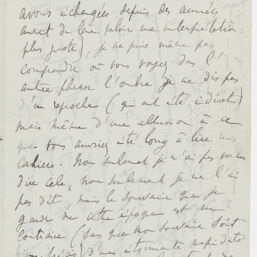 avons échangées depuis des années
avant de leur faire une interprétation
plus juste), je ne puis même pas
comprendre où vous voyez dans l'
autre phrase l'ombre je ne dis pas
d'un reproche (qui eût été idiot)
mais même d'une allusion à ce
que vous auriez été long à lire mes
cahiers. Non seulement je n'ai pas voulu
dire cela, non seulement je ne l'ai
pas dit, mais le souvenir que je
garde de cette époque est au
contraire (pas que mon souvenir soit
d'une étonnante rapidité